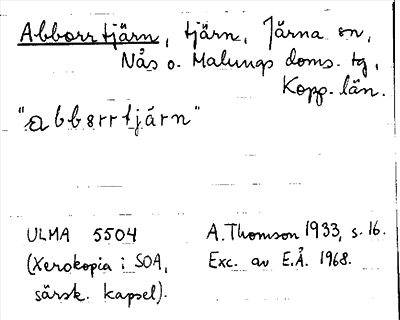 Abborrtjärn, tjärn, Järna sn,
Nås o. Malungs doms. tg,
Kopp. län.
"abbərrtjárn"
ULMA 5504
(Xerokopia i SOA,
särsk. kapsel).
A. Thomson 1933, s. 16.
Exc. av E.Å. 1968.